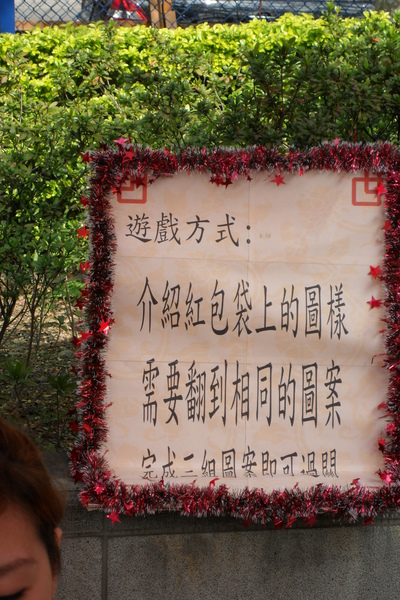 遊戲方式:
介紹紅包袋上的圖樣
需要翻到相同的圖案
完成三組圖案即可過關